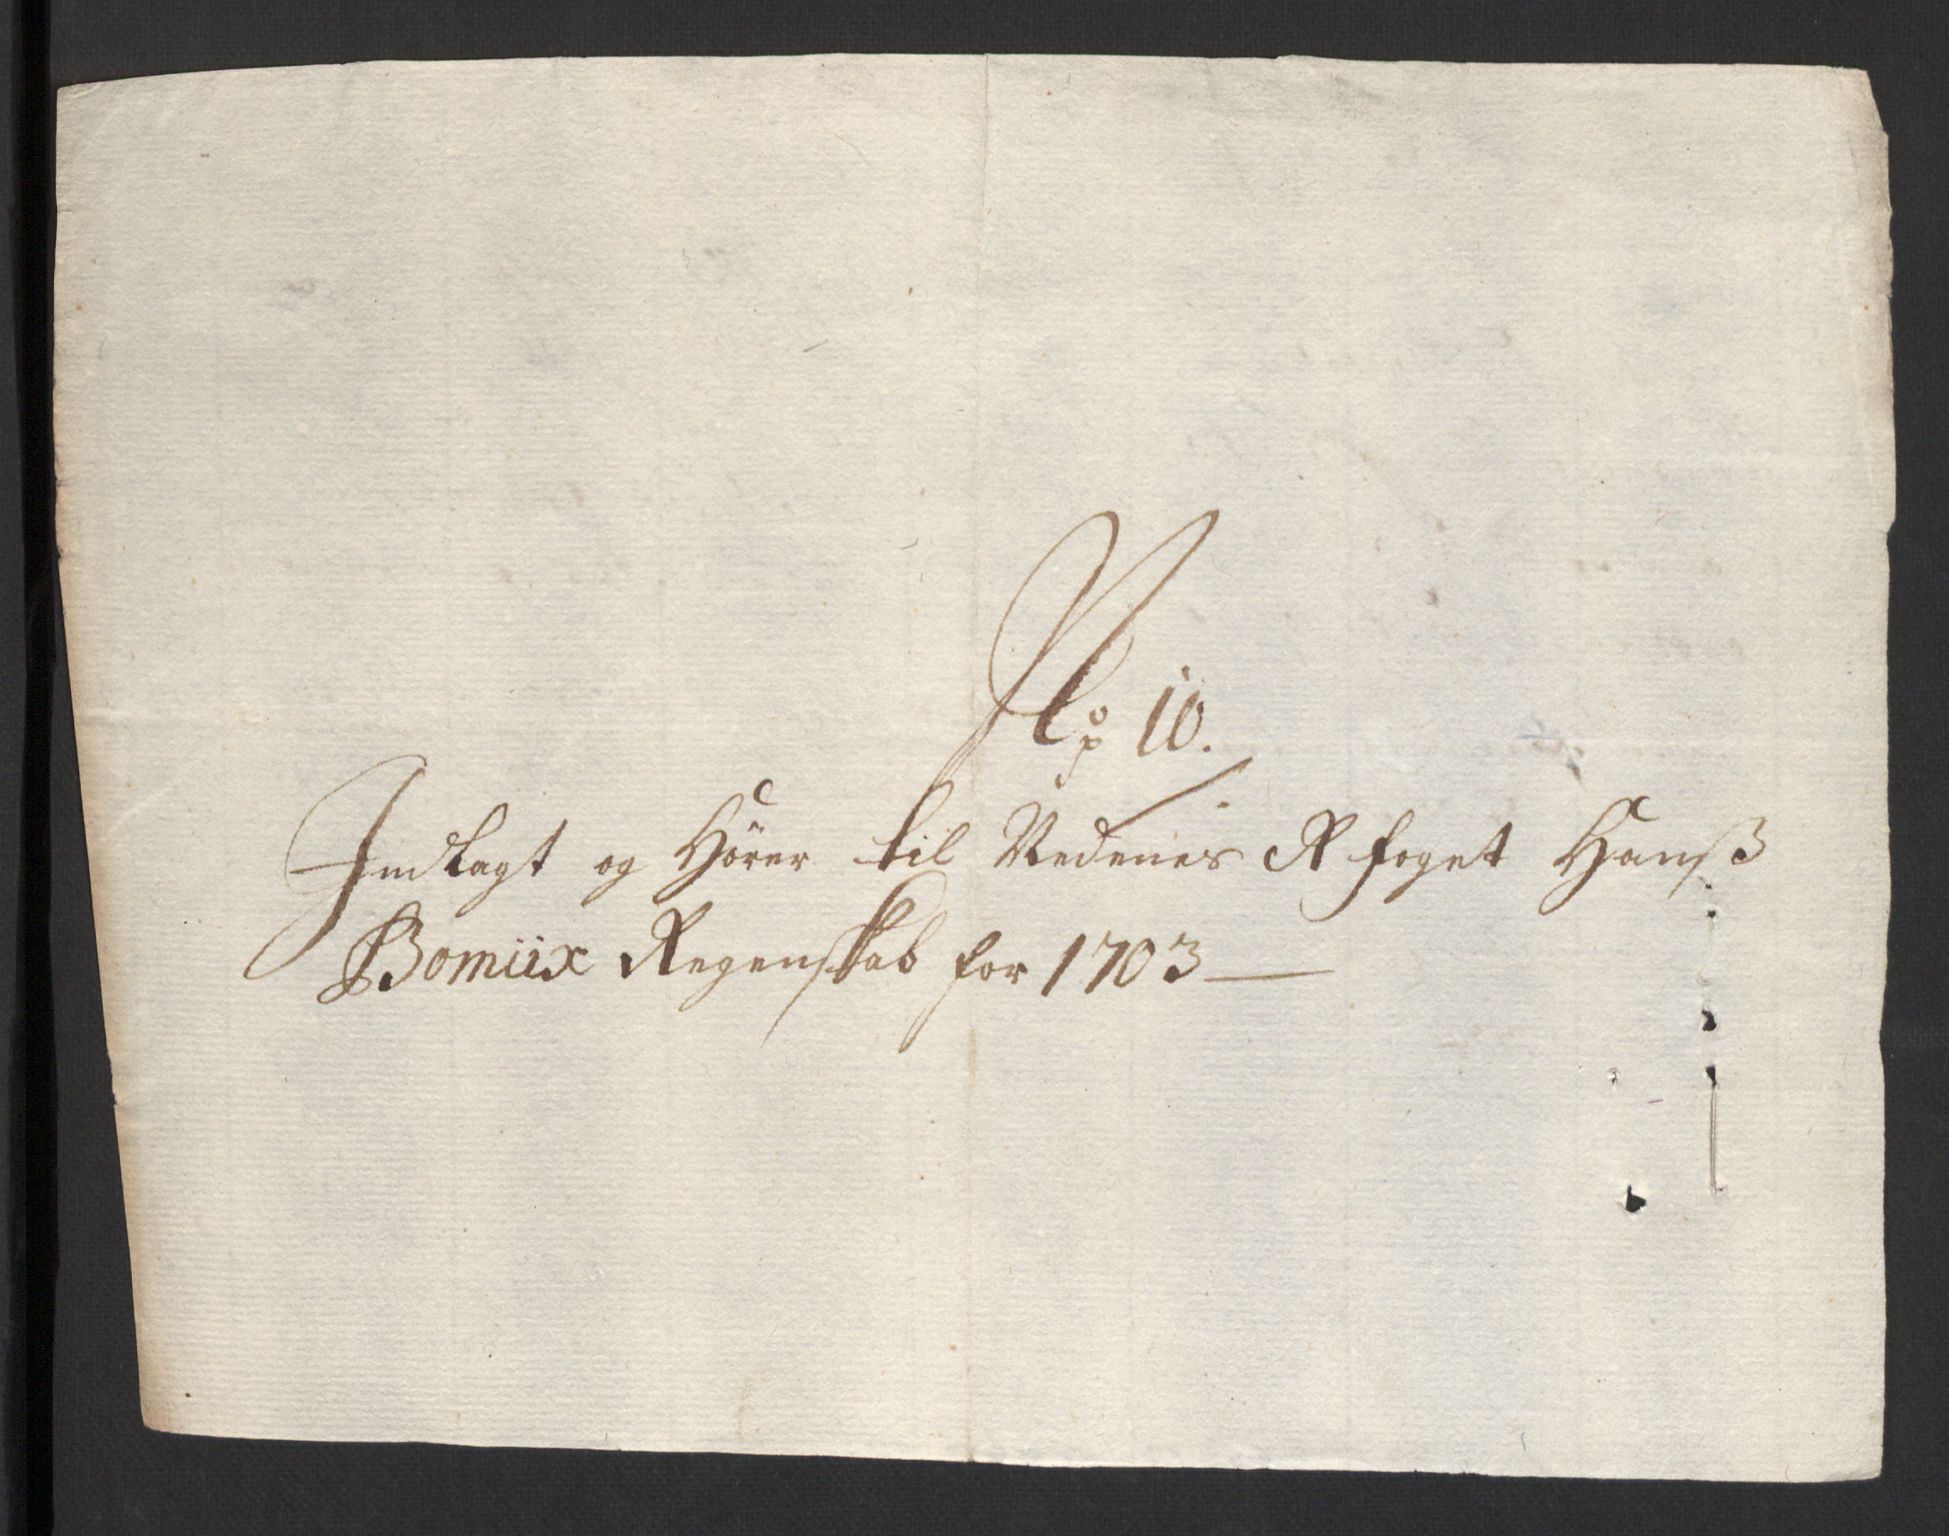 No 10.
Indlagt og Hører til Nedenes R foget Hanß
Bomüx Regenskab for 1703